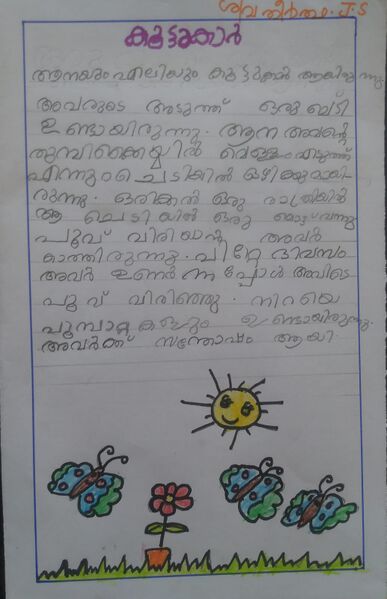 ശിവതീർത്ഥ. J.S
കൂട്ടുകാർ
ആനയും എലിയും കൂട്ടുകാർ ആയിരുന്നു.
അവരുടെ അടുത്ത് ഒരു ചെടി
ഉണ്ടായിരുന്നു. ആന അവന്റെ
തുമ്പിക്കൈയ്യിൽ വെള്ളം എടുത്ത്
എന്നും ചെടിയിൽ ഒഴിക്കുമായി
രുന്നു. ഒരിക്കൽ ഒരു രാത്രിയിൽ
ആ ചെടിയിൽ ഒരു മൊട്ട് വന്നു
പൂവ് വിരിയാൻ അവർ
കാത്തിരുന്നു. പിറ്റേ ദിവസം
അവർ ഉണർന്നപ്പോൾ അവിടെ
പൂവ് വിരിഞ്ഞു. നിറയെ
പൂമ്പാറ്റകളും ഉണ്ടായിരുന്നു.
അവർക്ക് സന്തോഷം ആയി.